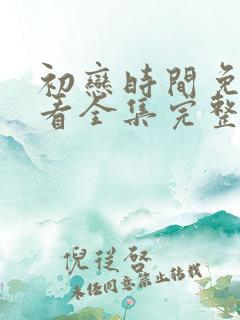 初戀時間免
看全集完整
倪從啓
未经同意禁止转载